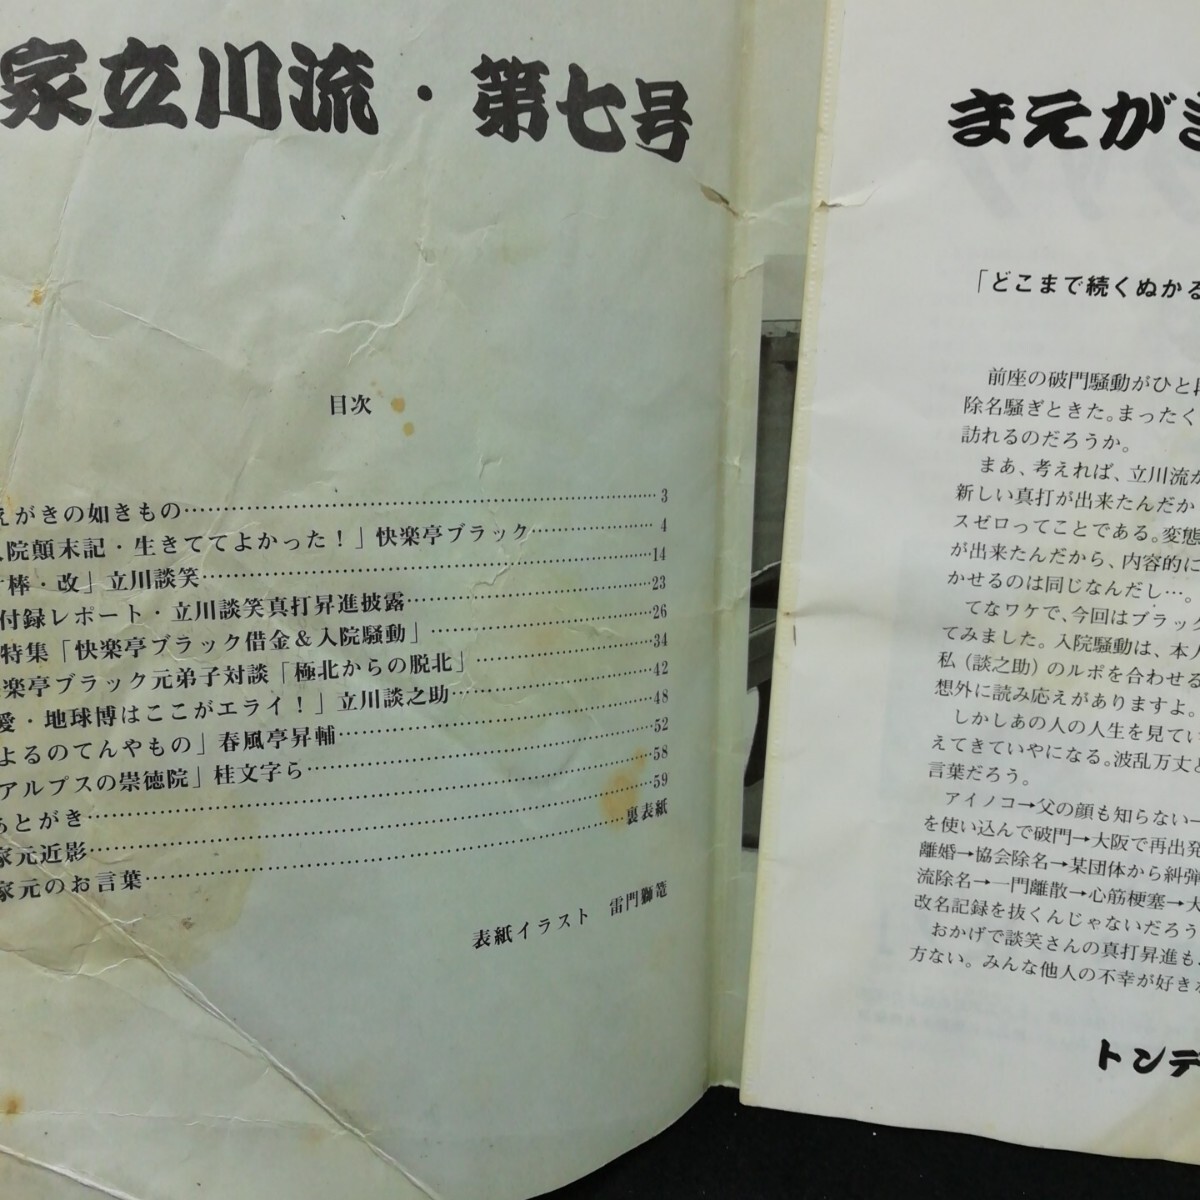 家立川流・第七号
目次
えがきの如きもの……3
入院顛末記・生きててよかった！」快楽亭ブラック……4
棒・改」立川談笑……14
付録レポート・立川談笑真打昇進披露……23
特集「快楽亭ブラック借金＆入院騒動」……26
楽亭ブラック元弟子対談「極北からの脱北」……34
愛・地球博はここがエライ！」立川談之助……42
よるのてんやもの」春風亭昇輔……48
アルプスの崇徳院」桂文字ら……52
あとがき……58
家元近影……59
家元のお言葉……裏表紙
表紙イラスト　雷門獅篭
まえがき
「どこまで続くぬかる
前座の破門騒動がひと段
除名騒ぎときた。まったく
訪れるのだろうか。
まあ、考えれば、立川流か
新しい真打が出来たんだか
スゼロってことである。変態
が出来たんだから、内容的に
かせるのは同じなんだし…。
てなワケで、今回はブラック
てみました。入院騒動は、本人
私（談之助）のルポを合わせる
想外に読み応えがありますよ。
しかしあの人の人生を見てい
えてきていやになる。波乱万丈と
言葉だろう。
アイノコ→父の顔も知らない→
を使い込んで破門→大阪で再出発
離婚→協会除名→某団体から糾弾
流除名→一門離散→心筋梗塞→大
改名記録を抜くんじゃないだろう
おかげで談笑さんの真打昇進も
方ない。みんな他人の不幸が好きな
トンデ